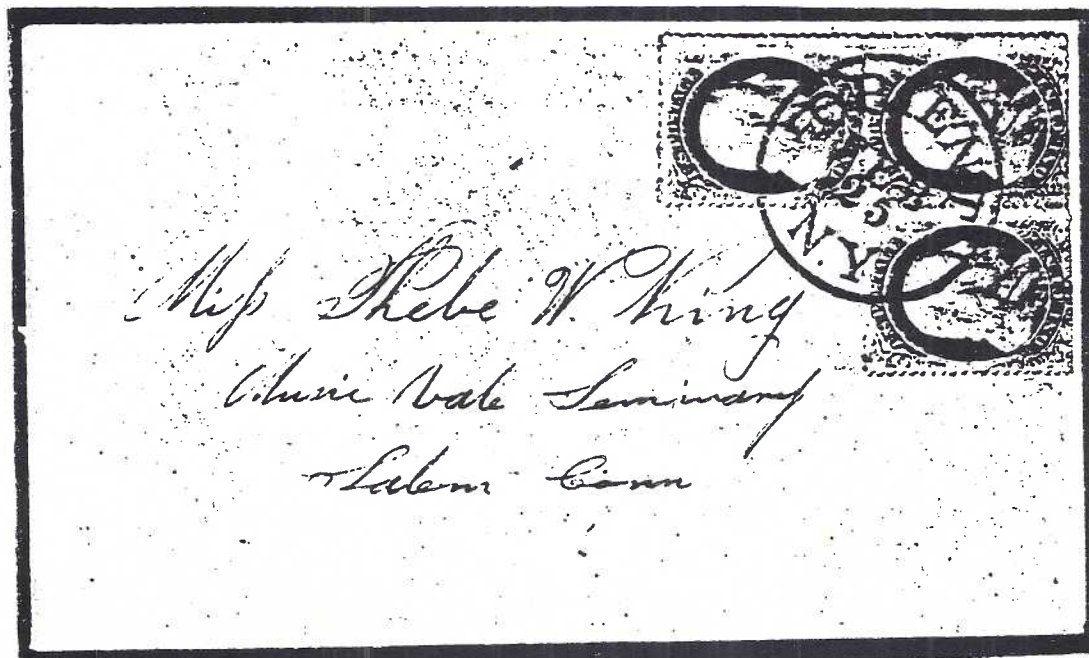 Miss Phebe W. King
Music Vale Seminary
Salem Conn
N.Y.